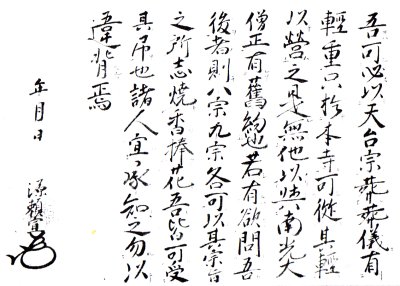 吾可必以天台宗葬葬儀有
輕重只於本寺可從其輕
以營之是無他以與南光大
僧正有舊約也若有欲問吾
後者則八宗九宗各可以其宗旨
之所志燒香捧花吾皆可受
其吊也諸人宜承知之勿以
違背焉
年月日
源賴宣